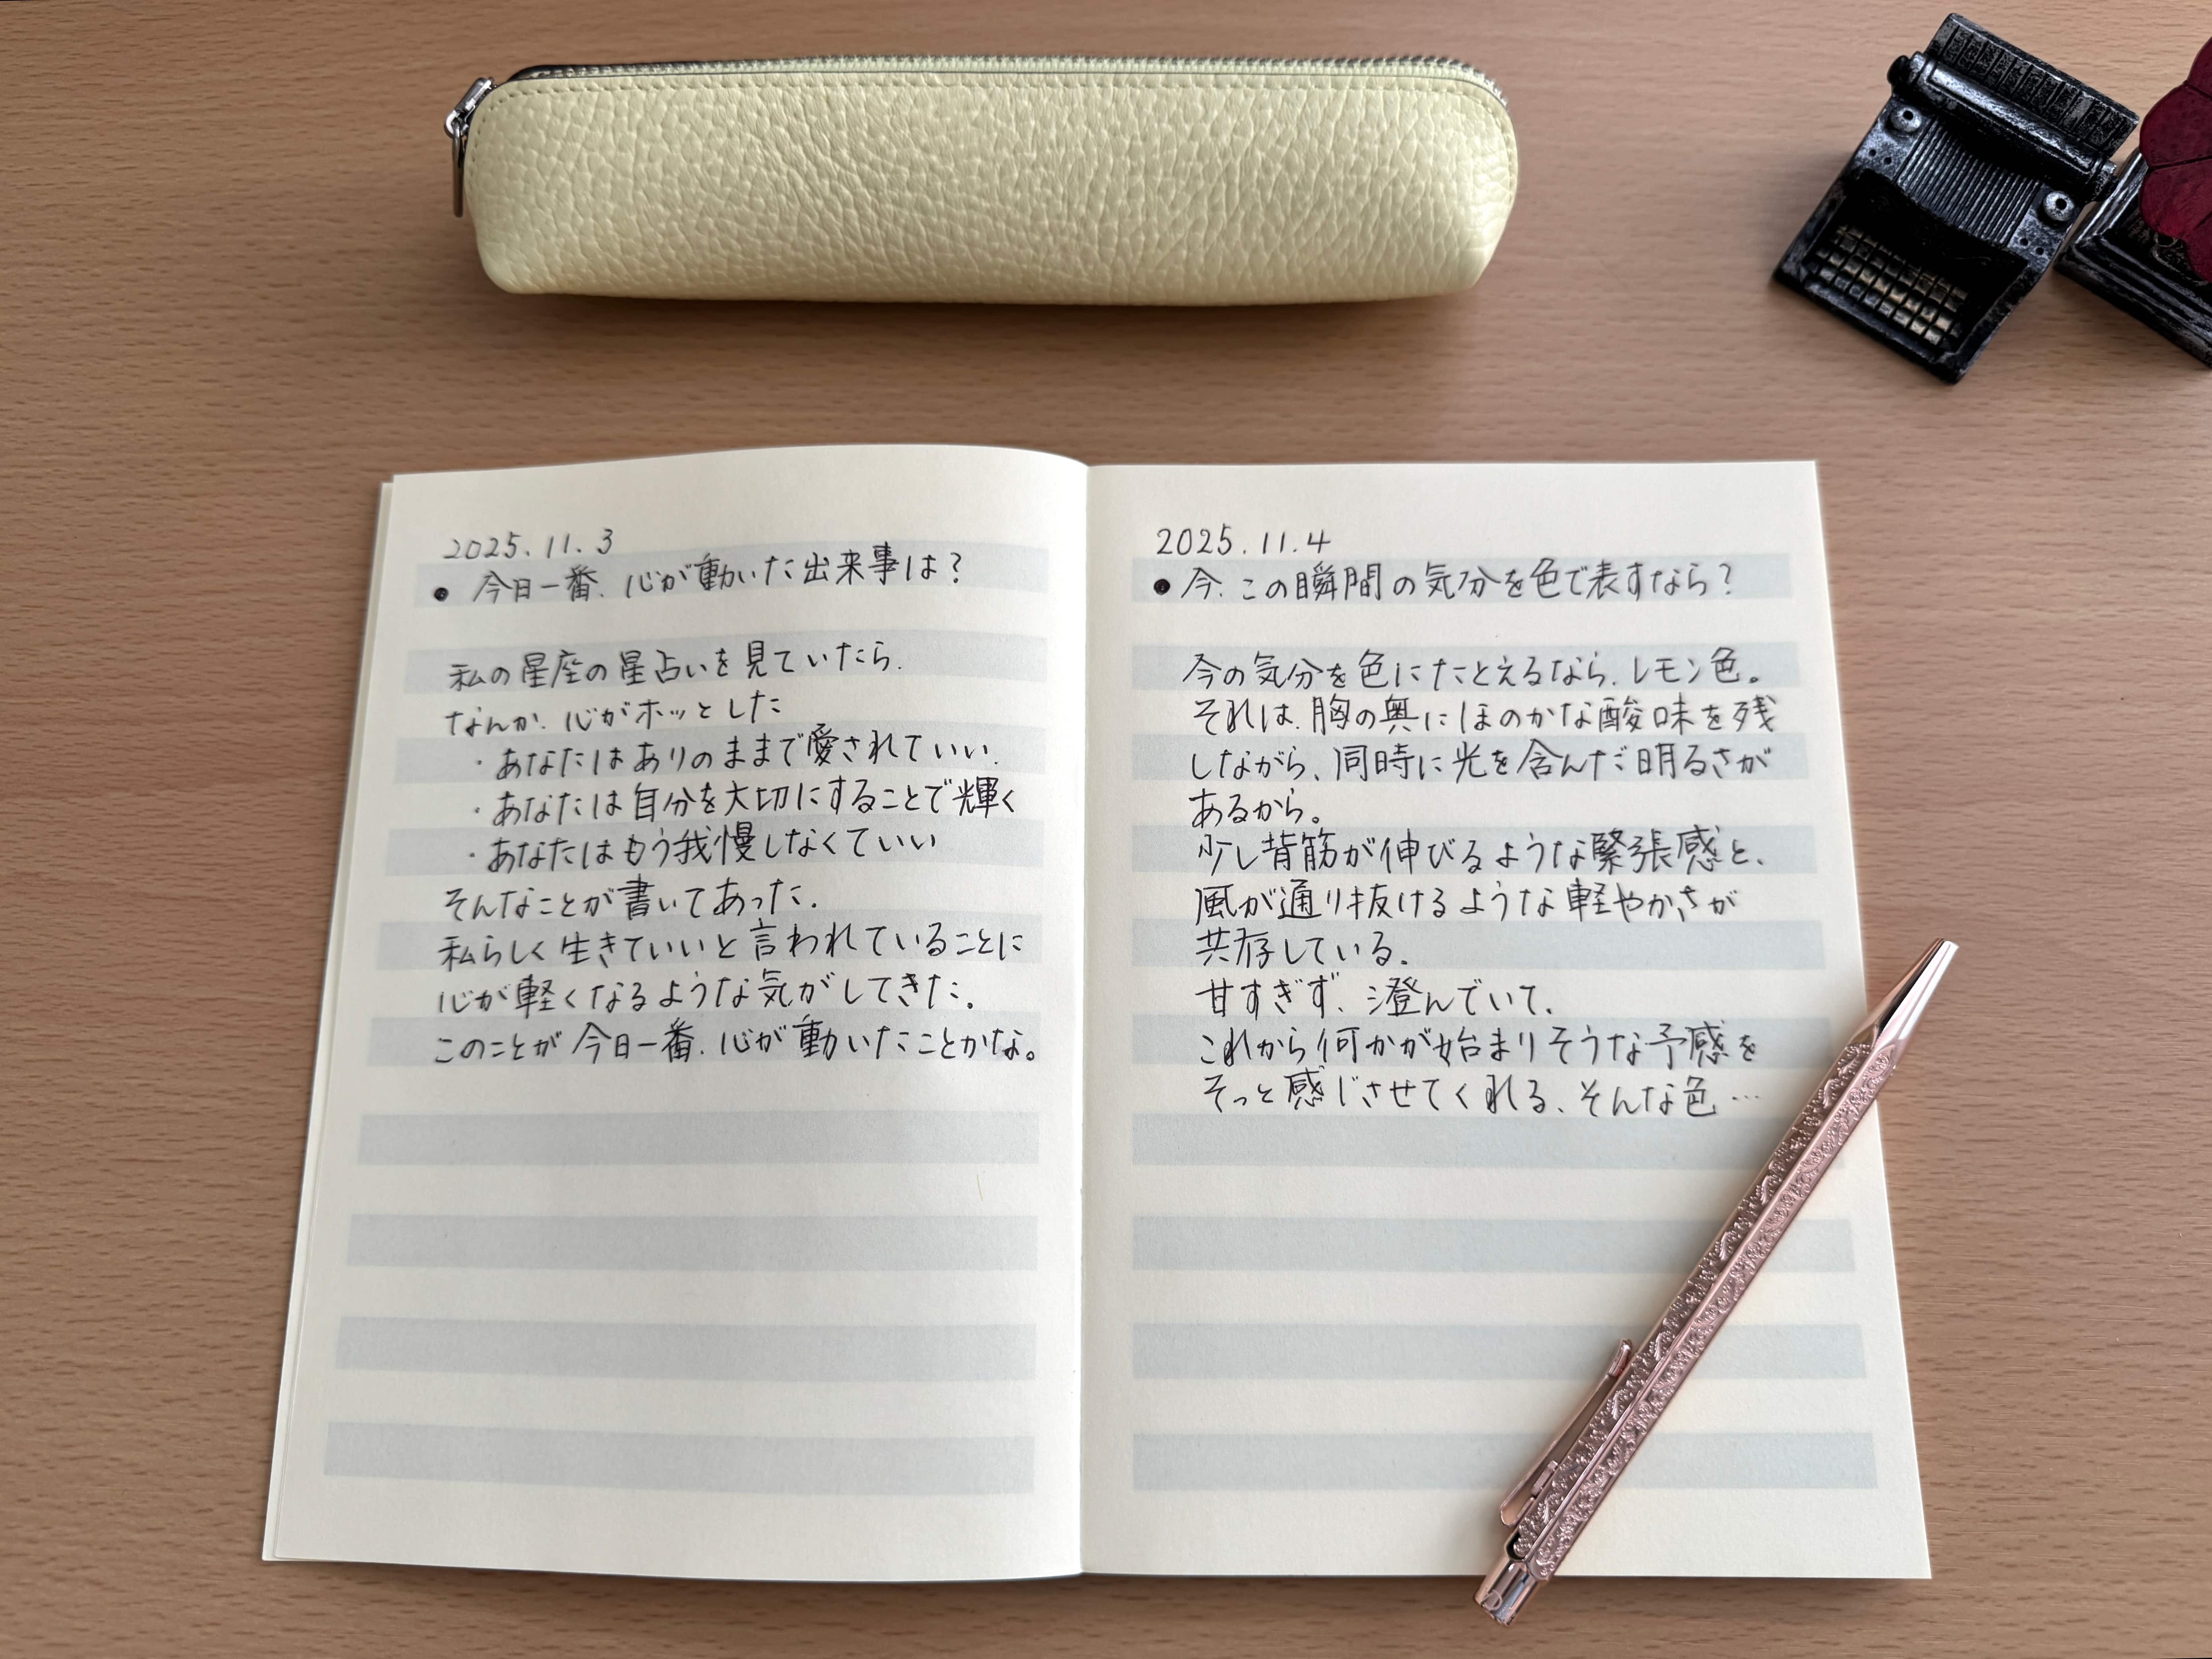 2025.11.3
● 今日一番、心が動いた出来事は？
私の星座の星占いを見ていたら、
なんか、心がホッとした
・あなたはありのままで愛されていい、
・あなたは自分を大切にすることで輝く
・あなたはもう我慢しなくていい
そんなことが書いてあった。
私らしく生きていいと言われていることに
心が軽くなるような気がしてきた。
このことが今日一番、心が動いたことかな。
2025.11.4
● 今、この瞬間の気分を色で表すなら？
今の気分を色にたとえるなら、レモン色。
それは、胸の奥にほのかな酸味を残
しながら、同時に光を含んだ明るさが
あるから。
少し背筋が伸びるような緊張感と、
風が通り抜けるような軽やかさが
共存している。
甘すぎず、澄んでいて、
これから何かが始まりそうな予感を
そっと感じさせてくれる、そんな色…